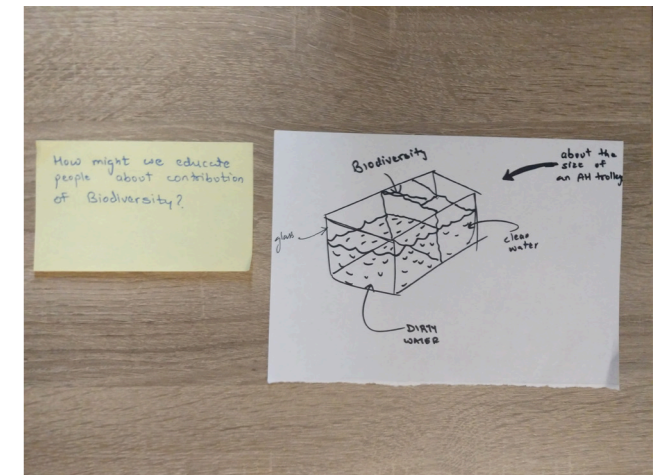 How might we educate
people about contribution
of Biodiversity?
Biodiversity
about the
size of
an AH trolley
glass
clean
water
DIRTY
WATER